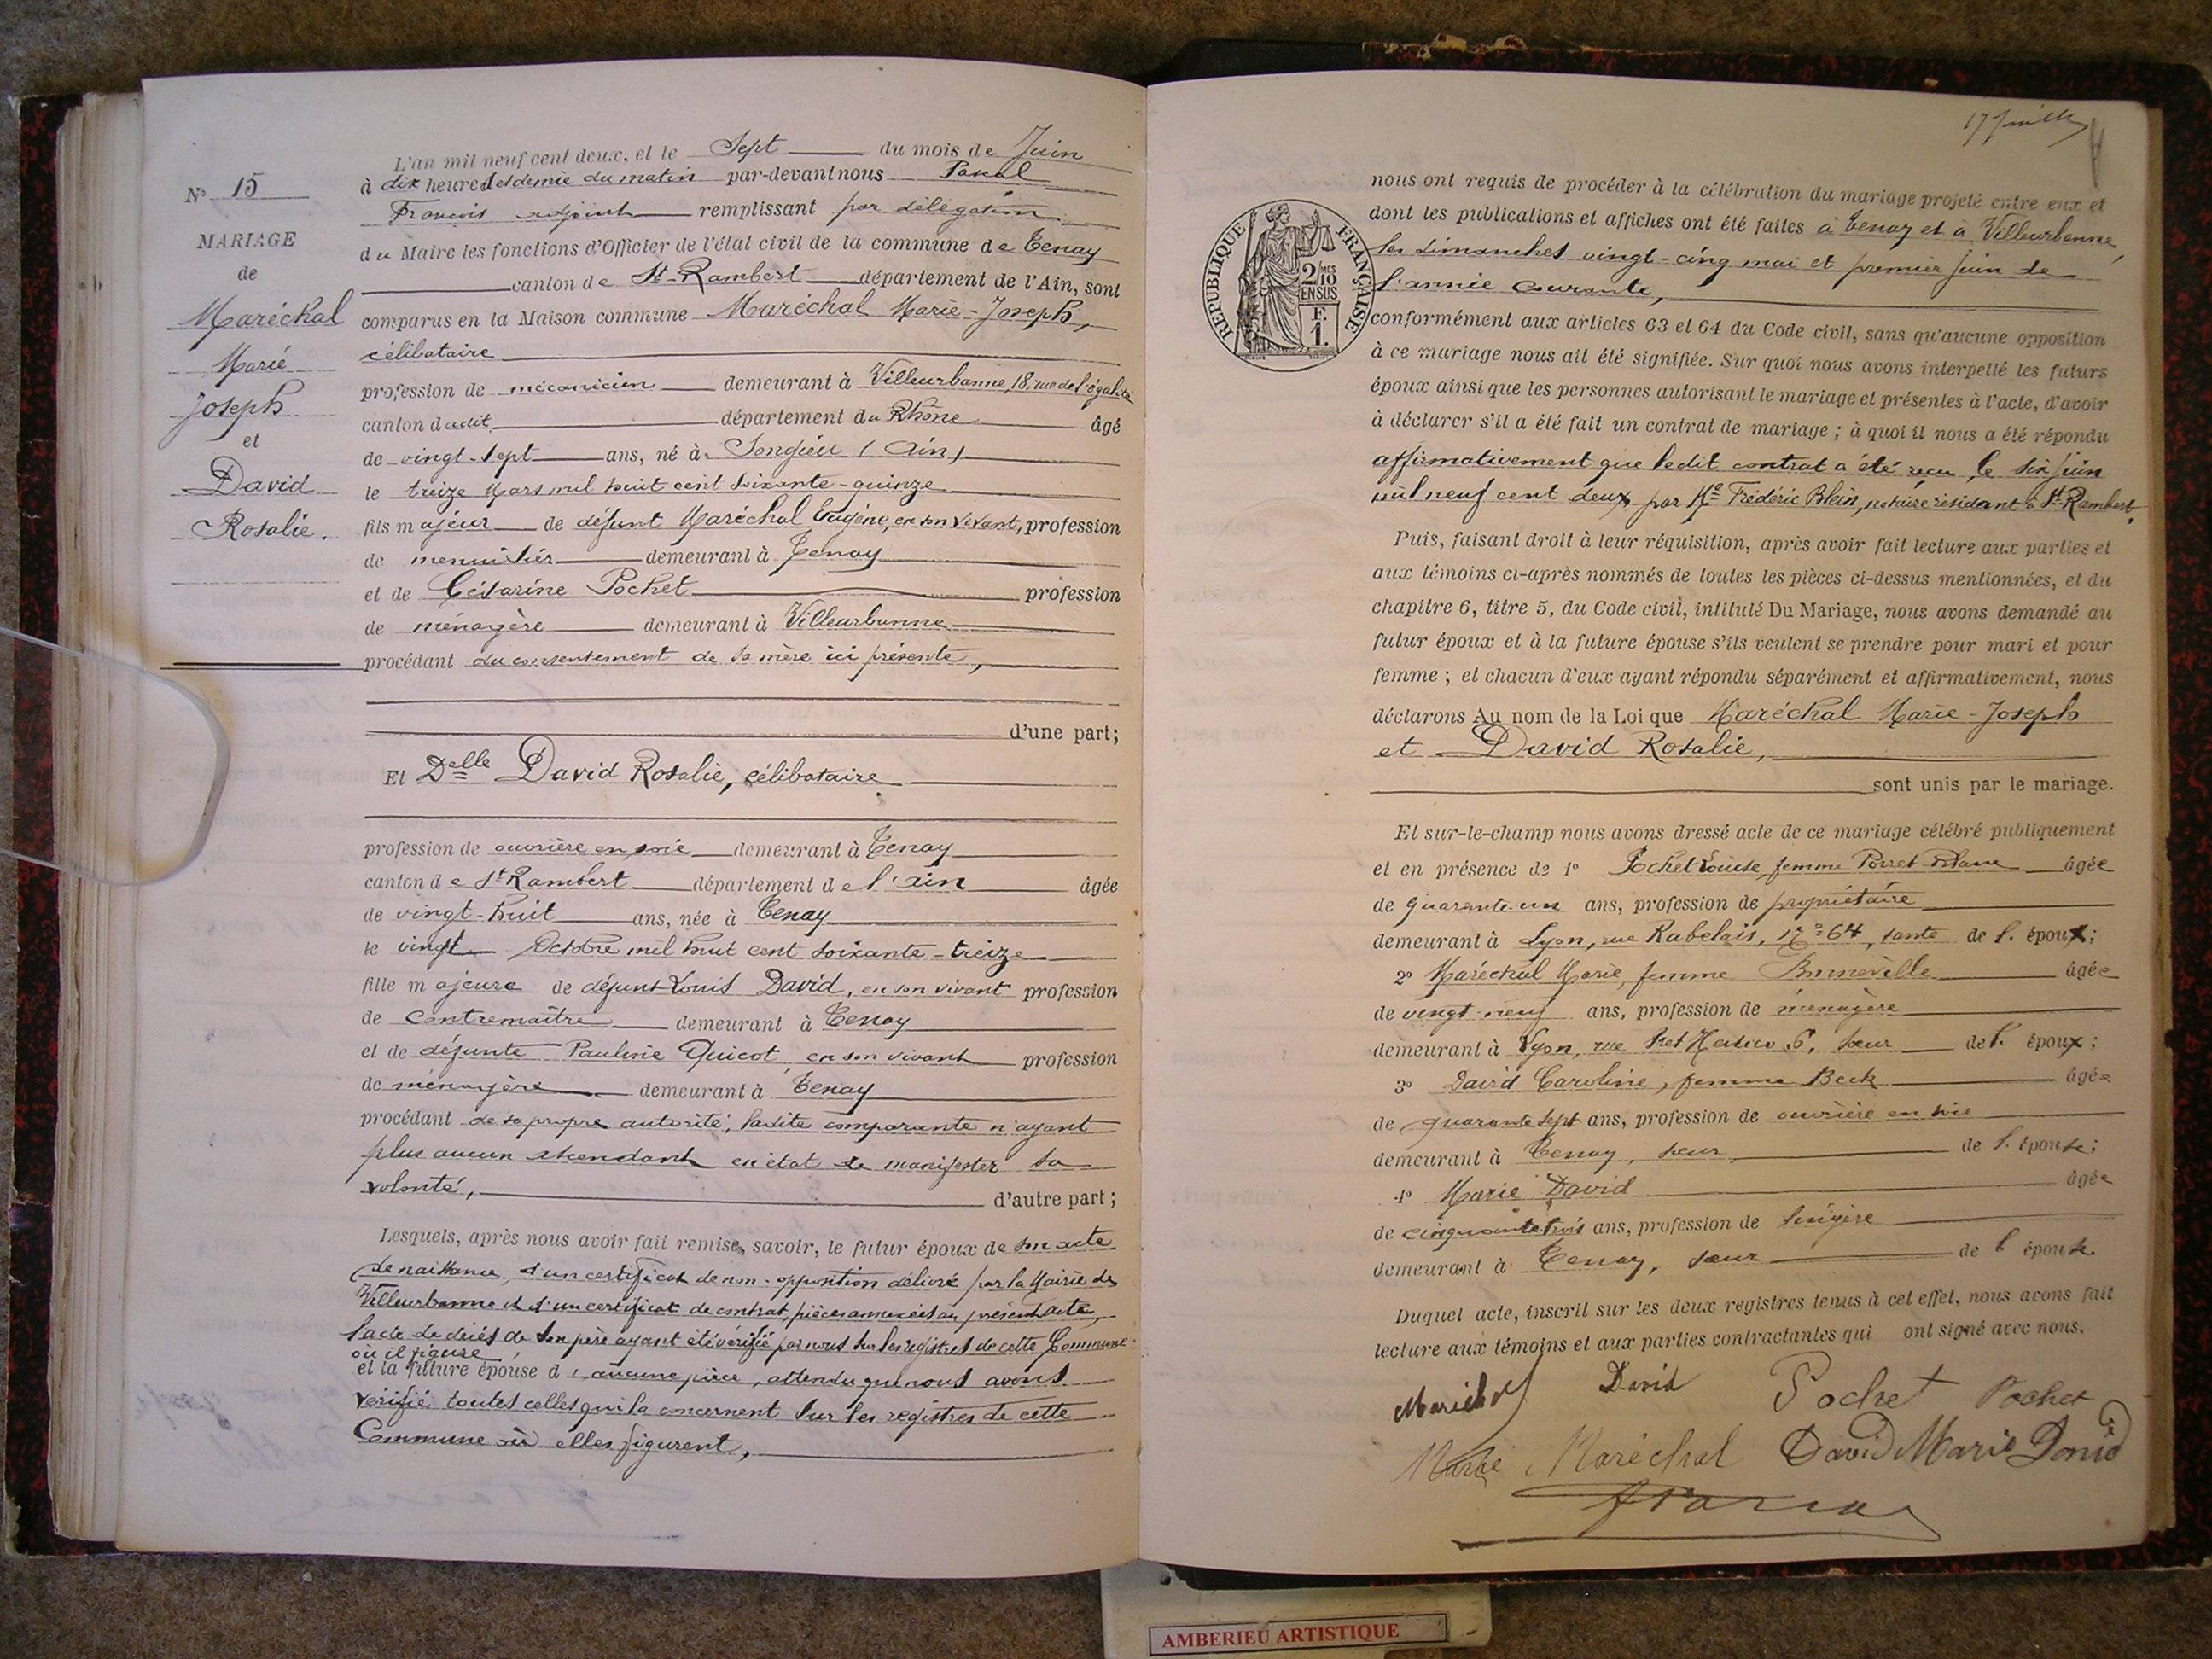 N° 15
MARIAGE
de
Maréchal
Marie
Joseph
et
David
Rosalie.
L'an mil neuf cent deux, et le Sept du mois de Juin
à dix heures et demie du matin par-devant nous Pascal
François adjoint remplissant par délégation
du Maire les fonctions d'Officier de l'état civil de la commune de Tenay
canton de St-Rambert département de l'Ain, sont
comparus en la Maison commune Maréchal Marie-Joseph,
célibataire
profession de mécanicien demeurant à Villeurbanne, 18, rue de l'égalité
canton dudit département du Rhône âgé
de vingt-sept ans, né à Songieu (Ain)
le treize Mars mil huit cent soixante-quinze
fils majeur de défunt Maréchal Eugène, en son vivant, profession
de menuisier demeurant à Tenay
et de Césarine Pochet profession
de ménagère demeurant à Villeurbanne
procédant du consentement de sa mère ici présente,
d'une part;
Et Delle David Rosalie, célibataire
profession de ouvrière en soie demeurant à Tenay
canton de St Rambert département de l'Ain âgée
de vingt-huit ans, née à Tenay
le vingt Octobre mil huit cent soixante-treize
fille majeure de défunt Louis David, en son vivant profession
de contremaître demeurant à Tenay
et de défunte Pauline Quicot, en son vivant profession
de ménagère demeurant à Tenay
procédant de sa propre autorité, ladite comparante n'ayant
plus aucun ascendant en état de manifester sa
volonté, d'autre part;
Lesquels, après nous avoir fait remise, savoir, le futur époux de son acte
de naissance, d'un certificat de non-opposition délivré par la Mairie de
Villeurbanne et d'un certificat de contrat, pièces annexées au présent acte,
l'acte de décès de son père ayant été vérifié par nous sur les registres de cette Commune
où il figure
et la future épouse d'aucune pièce, attendu que nous avons
vérifié toutes celles qui la concernent sur les registres de cette
Commune où elles figurent,
17 Juin
RÉPUBLIQUE FRANÇAISE
2/10
MES
EN SUS
F.
1.
nous ont requis de procéder à la célébration du mariage projeté entre eux et
dont les publications et affiches ont été faites à Tenay et à Villeurbanne,
les dimanches vingt-cinq mai et premier juin de
l'année courante,
conformément aux articles 63 et 64 du Code civil, sans qu'aucune opposition
à ce mariage nous ait été signifiée. Sur quoi nous avons interpellé les futurs
époux ainsi que les personnes autorisant le mariage et présentes à l'acte, d'avoir
à déclarer s'il a été fait un contrat de mariage; à quoi il nous a été répondu
affirmativement que ledit contrat a été reçu, le six juin
mil neuf cent deux par Me Frédéric Blein, notaire résidant à St-Rambert.
Puis, faisant droit à leur réquisition, après avoir fait lecture aux parties et
aux témoins ci-après nommés de toutes les pièces ci-dessus mentionnées, et du
chapitre 6, titre 5, du Code civil, intitulé Du Mariage, nous avons demandé au
futur époux et à la future épouse s'ils veulent se prendre pour mari et pour
femme; et chacun d'eux ayant répondu séparément et affirmativement, nous
déclarons Au nom de la Loi que Maréchal Marie-Joseph
et David Rosalie,
sont unis par le mariage.
Et sur-le-champ nous avons dressé acte de ce mariage célébré publiquement
et en présence de 1° Pochet Louise, femme Porret âgée
de quarante-un ans, profession de propriétaire
demeurant à Lyon, rue Rabelais, 64, tante de l'époux;
2° Maréchal Marie, femme Bonneville âgée
de vingt-neuf ans, profession de ménagère
demeurant à Lyon, rue 5, soeur de l'époux;
3° David Caroline, femme Beck âgée
de quarante sept ans, profession de ouvrière en soie
demeurant à Tenay, soeur de l'épouse;
4° Marie David âgée
de cinquante trois ans, profession de lingère
demeurant à Tenay, soeur de l'épouse.
Duquel acte, inscrit sur les deux registres tenus à cet effet, nous avons fait
lecture aux témoins et aux parties contractantes qui ont signé avec nous.
Maréchal David Pochet Pochet
Marie Maréchal David Marie David
AMBERIEU ARTISTIQUE